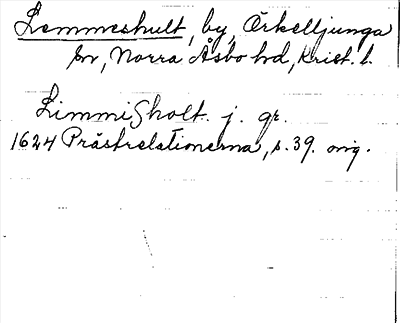 Lemmeshult, by, Örkelljunga
sn, Norra Åsbo hd, Krist. l.
Limmisholt. j. gr.
1624 Prästrelationerna, s. 39. orig.